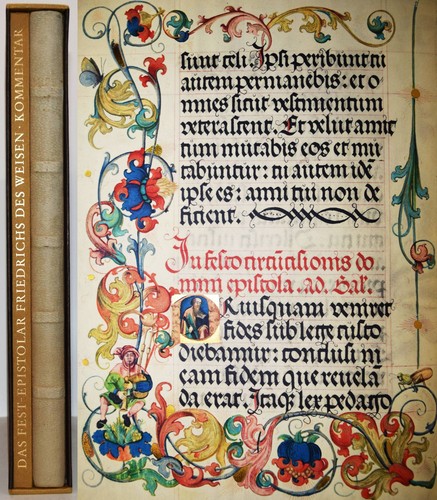 DAS FEST-EPISTOLAR FRIEDRICHS DES WEISEN · KOMMENTAR
sunt celi. Ipsi peribunt tu
autem permanebis: et o
mnes sicut vestimentum
veterascent. Et velut amic
tum mutabis eos et mu
tabuntur: tu autem idē
ipse es: anni tui non de
ficient.
In festo circūcisionis do
mini epistola. ad. Gal:
PRiusquam veniret
fides sub lege custo
diebamur: conclusi in
eam fidem que revelā
da erat. Itaq̄ lex pedago